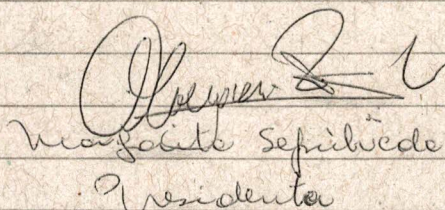 Margarita Sepúlveda
Presidenta